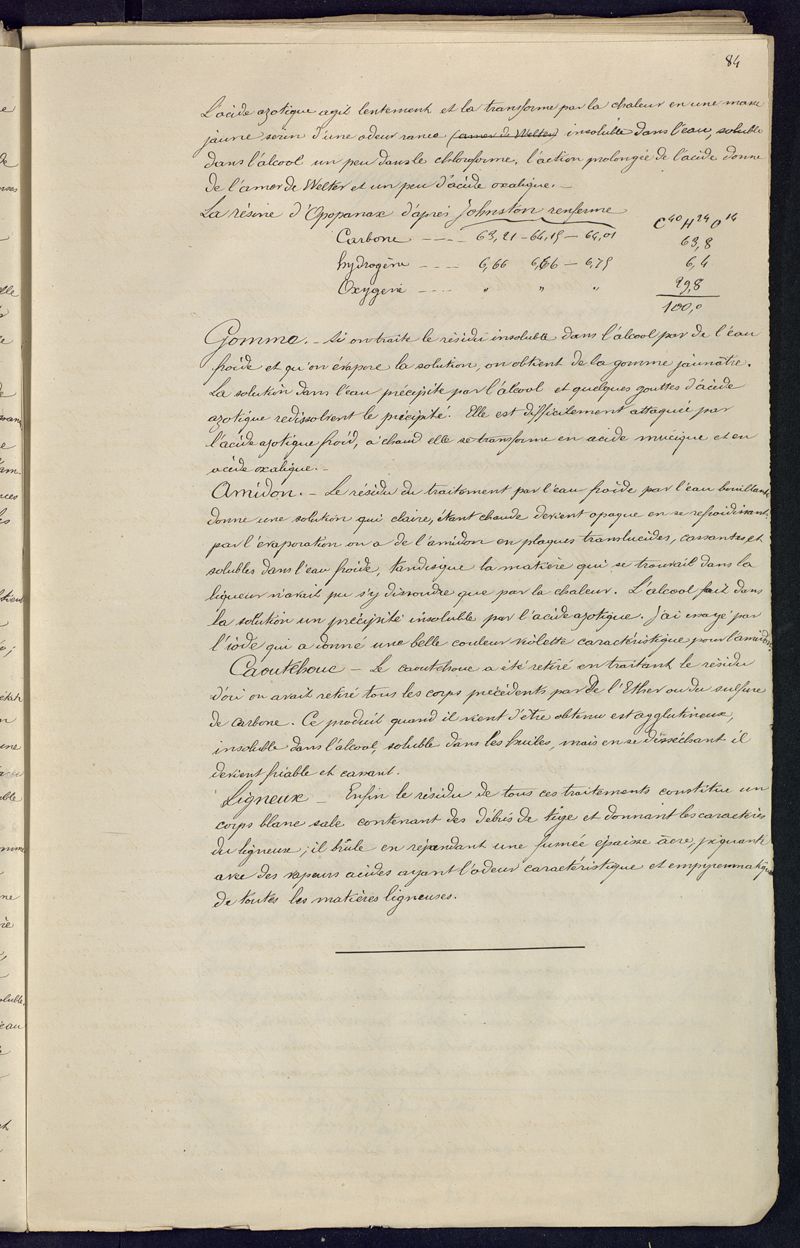 84
L'acide azotique agit lentement et la transforme par la chaleur en une masse
jaune serin d'une odeur rance (amer de Welter) insoluble dans l'eau, soluble
dans l'alcool un peu dans le chloroforme. l'action prolongée de l'acide donne
de l'amer de Welter et un peu d'acide oxalique. —
La résine d'Opopanax d'après Johnston renferme
C⁴⁰ H²⁴ O¹⁴
Carbone ---- 63,21 – 64,15 – 64,01 63,8
hydrogène ---- 6,66 6,66 – 6,75 6,4
Oxygène ---- " " " 29,8
100,0
Gomme. — Si on traite le résidu insoluble dans l'alcool par de l'eau
froide et qu'on évapore la solution, on obtient de la gomme jaunâtre.
La solution dans l'eau précipite par l'alcool et quelques gouttes d'acide
azotique redissolvent le précipité. Elle est difficilement attaquée par
l'acide azotique froid, à chaud elle se transforme en acide mucique et en
acide oxalique. —
Amidon. — Le résidu du traitement par l'eau froide par l'eau bouillante
donne une solution qui claire, étant chaude devient opaque en se refroidissant.
par l'évaporation on a de l'amidon en plaques translucides, cassantes, et
solubles dans l'eau froide, tandisque la matière qui se trouvait dans la
liqueur n'avait pu s'y dissoudre que par la chaleur. L'alcool fait dans
la solution un précipité insoluble par l'acide azotique. J'ai essayé par
l'iode qui a donné une belle couleur violette caractéristique pour l'amidon
Caoutchouc — Le caoutchouc a été retiré en traitant le résidu
d'où on avait retiré tous les corps précédents par de l'Ether ou du sulfure
de carbone. Ce produit quand il vient d'être obtenu est agglutineux,
insoluble dans l'alcool, soluble dans les huiles, mais en se désséchant il
devient friable et cassant.
Ligneux — Enfin le résidu de tous ces traitements constitue un
corps blanc sale contenant des débris de tige et donnant les caractères
du ligneux; il brûle en répandant une fumée épaisse âcre, piquante
avec des vapeurs acides ayant l'odeur caractéristique et empyreumatique
de toutes les matières ligneuses.